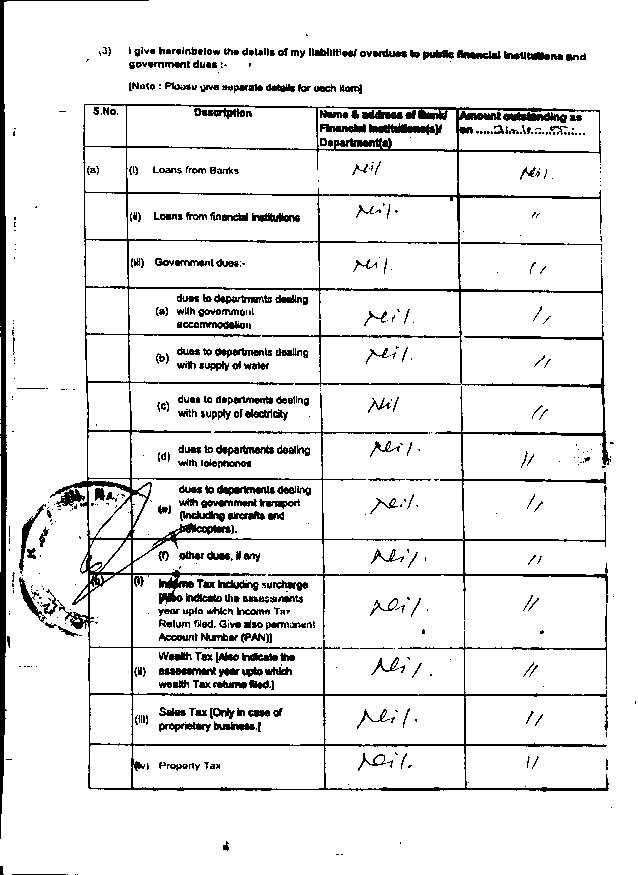 (3) I give hereinbelow the details of my liabilities/ overdues to public financial institutions and
government dues :-
[Note : Please give separate details for each item]
S.No. Description Name & address of Bank/
Financial Institutions(s)/
Department(s) Amount outstanding as
on
(a) (i) Loans from Banks Nil Nil.
(ii) Loans from financial institutions Nil. "
(iii) Government dues:- Nil. "
(a) dues to departments dealing
with government
accommodation Nil. "
(b) dues to departments dealing
with supply of water Nil. "
(c) dues to departments dealing
with supply of electricity Nil "
(d) dues to departments dealing
with telephones Nil. "
(e) dues to departments dealing
with government transport
(including aircrafts and
helicopters). Nil. "
(f) other dues, if any Nil. "
(b) (i) Income Tax including surcharge
[Also indicate the assessments
year upto which Income Tax
Return filed. Give also permanent
Account Number (PAN)] Nil. "
(ii) Wealth Tax [Also indicate the
assessment year upto which
wealth Tax returns filed.] Nil. "
(iii) Sales Tax [Only in case of
proprietary business.[ Nil. "
(iv) Property Tax Nil. "